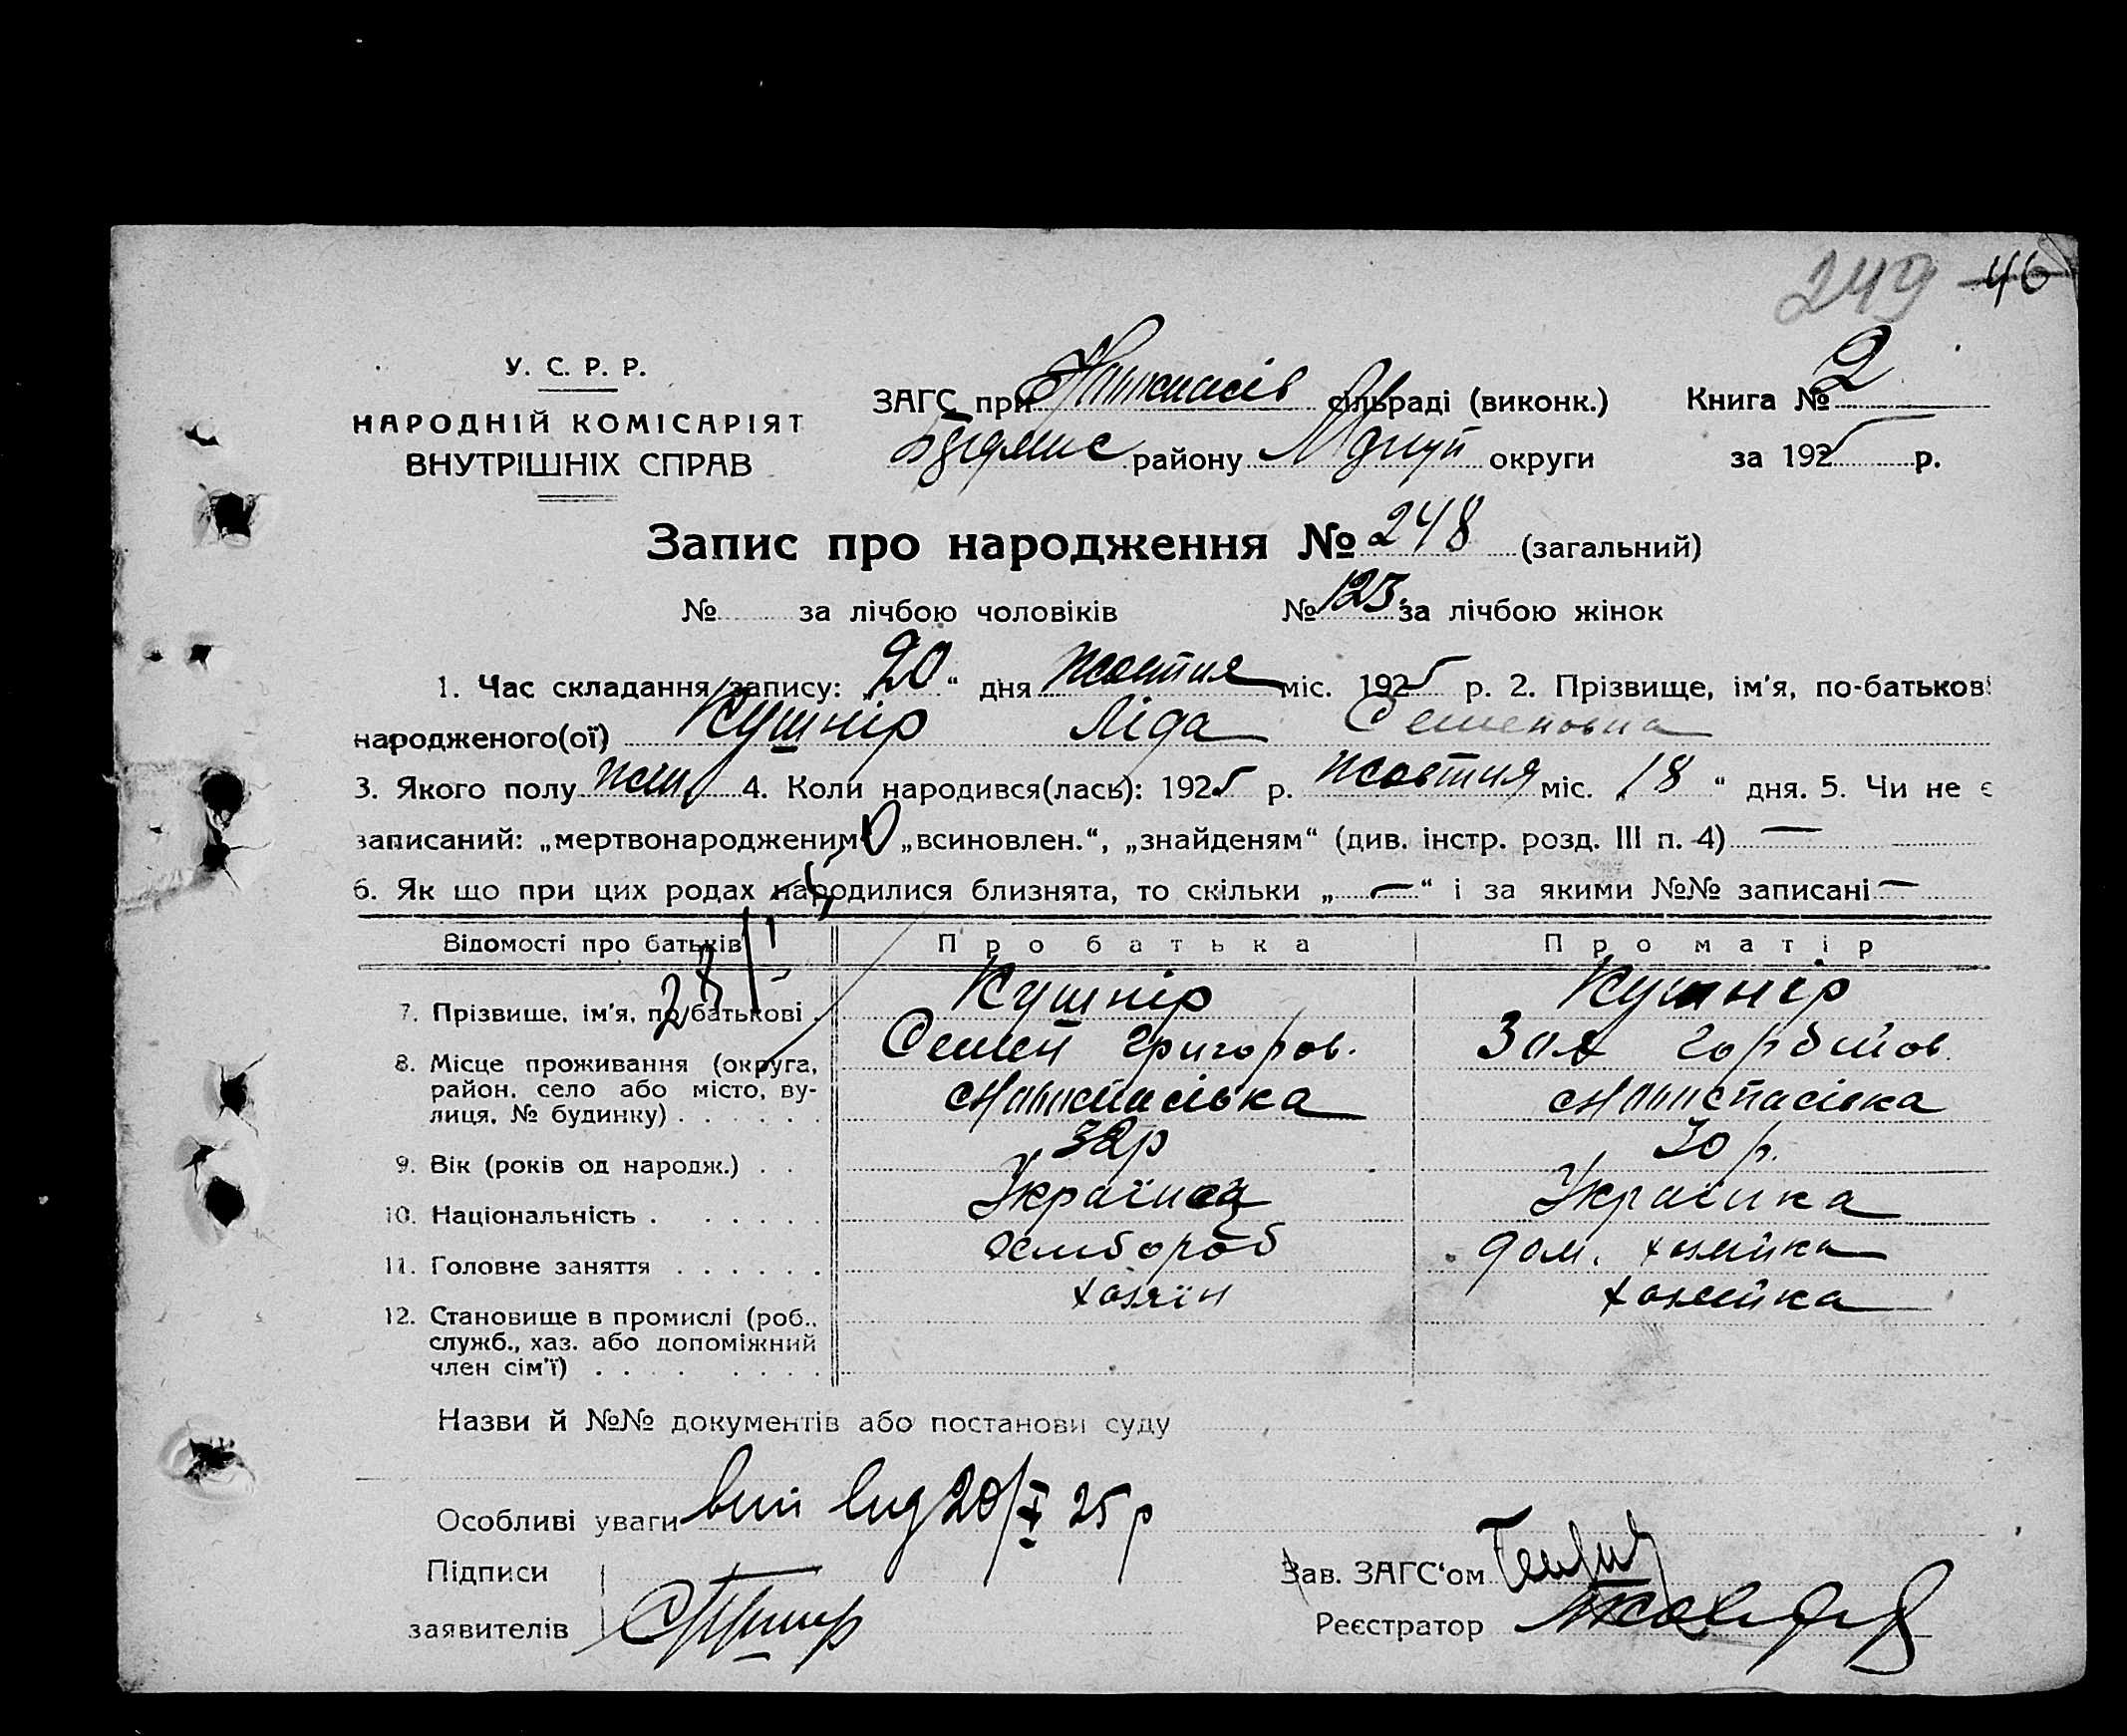 249 46
У. С. Р. Р.
НАРОДНІЙ КОМІСАРІЯТ
ВНУТРІШНІХ СПРАВ
ЗАГС при сільраді (виконк.)
району округи
Книга № 2
за 1925 р.
Запис про народження № 248 (загальний)
№ за лічбою чоловіків № 123 за лічбою жінок
1. Час складання запису: „20“ дня жовтня міс. 1925 р. 2. Прізвище, ім'я, по-батькові
народженого(ої) Кушнір Ліда Семеновна
3. Якого полу жін 4. Коли народився(лась): 1925 р. жовтня міс. „18“ дня. 5. Чи не є
записаний: „мертвонародженим“ „всиновлен.“, „знайденям“ (див. інстр. розд. III п. 4) —
6. Як що при цих родах народилися близнята, то скільки „—“ і за якими №№ записані —
Відомості про батьків Про батька Про матір
7. Прізвище, ім'я, по батькові Кушнір Кушнір
Семен Григоров. Зоя
8. Місце проживання (округа,
район, село або місто, ву-
лиця, № будинку)
9. Вік (років од народж.) 32р 30 р.
10. Національність Українец Українка
11. Головне заняття хлібороб дом. хозяйка
12. Становище в промислі (роб., хозяїн хозяйка
служб., хаз. або допоміжний
член сім'ї)
Назви й №№ документів або постанови суду
Особливі уваги 20/X 25 р
Підписи
заявителів
Зав. ЗАГС'ом
Реєстратор